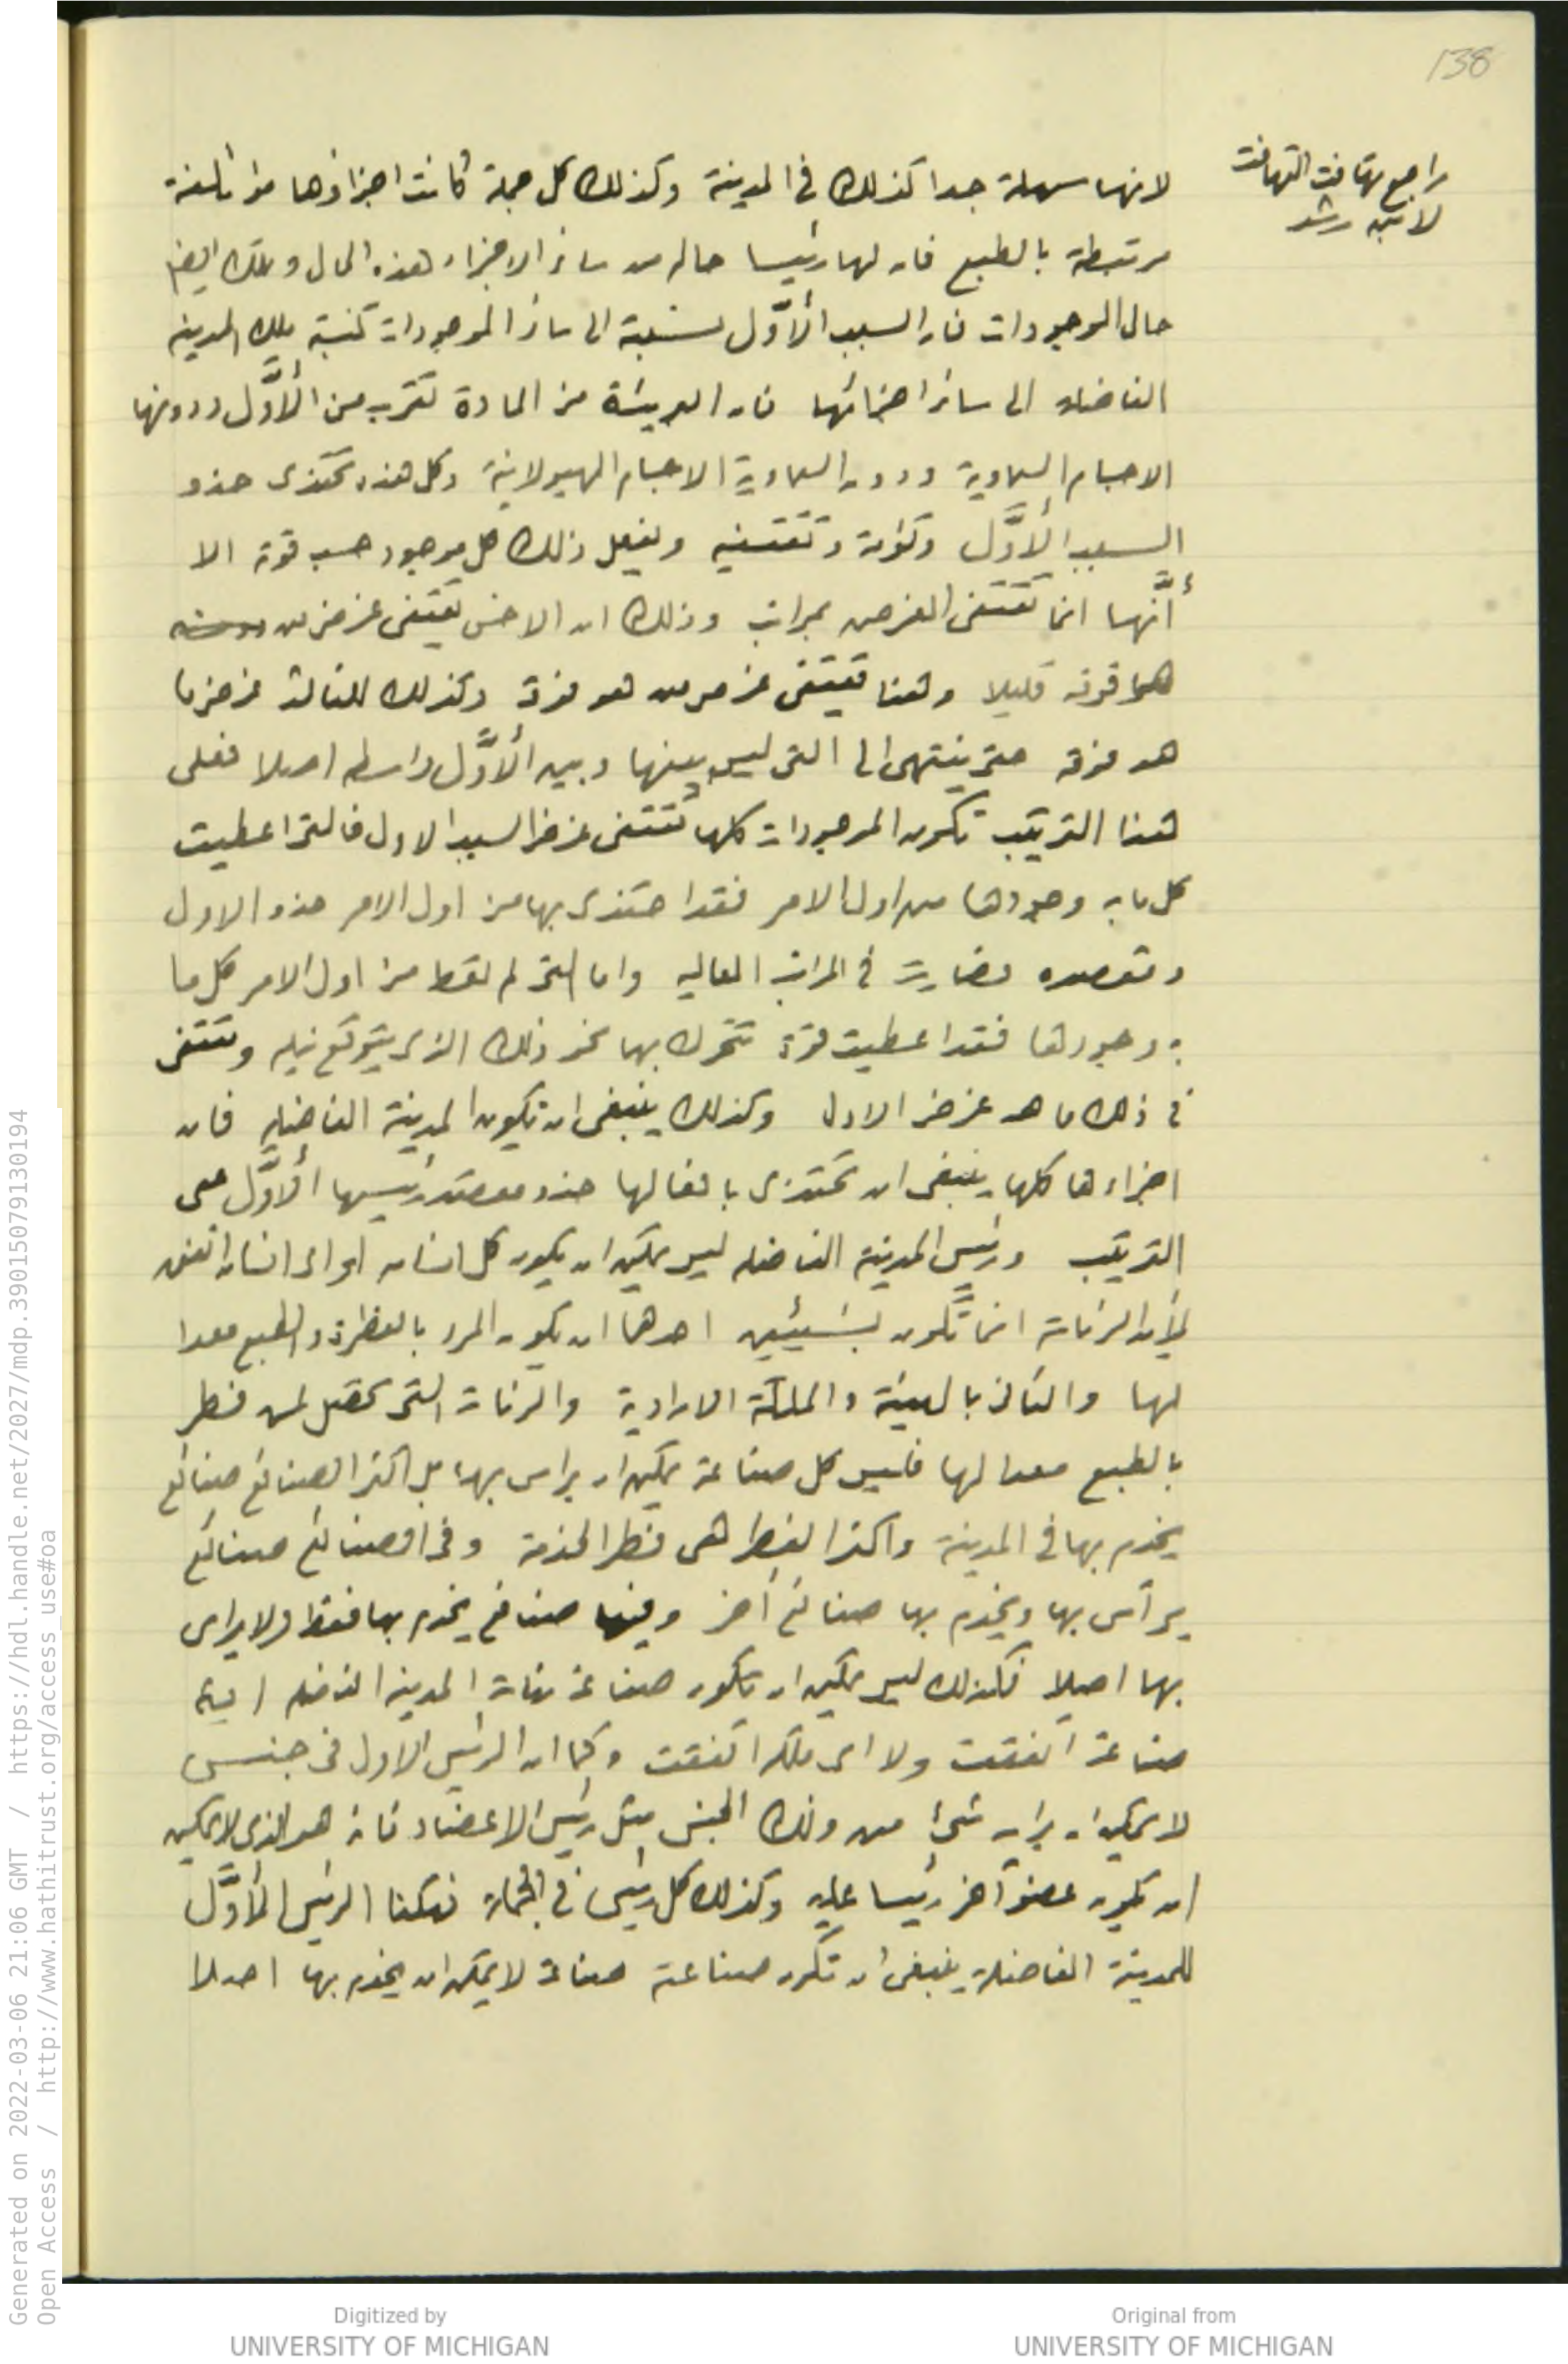 138
راجع تهافت التهافت
لابن رشد
لانها سهلة جدا كذلك في المدينة وكذلك كل جملة كانت اجزاؤها مؤتلفة
مرتبطة بالطبع فان لها رئيسا حاله من سائر الاجزاء هذه الحال وتلك ايضا
حال الموجودات فان السبب الأوَّل نسبته الى سائر الموجودات كنسبة ملك المدينة
الفاضلة الى سائر اجزائها فان البريئة من المادة تقرب من الأوَّل ودونها
الاجسام السماوية ودون السماوية الاجسام الهيولانية وكل هذه تحتذى حذو
السبب الأوَّل وتؤمه وتقتفيه ويفعل ذلك كل موجود حسب قوته الا
أنَّها انما تقتفى الغرض بمراتب وذلك ان الاخس يقتفى غرض من
هو فوقه قليلا وهذا يقتفى غرض من هو فوقه وكذلك للثالث غرض ما
هو فوقه حتى ينتهى الى التى ليس بينها وبين الأوَّل واسطه اصلا فعلى
هذا الترتيب تكون الموجودات كلها تقتفى غرض السبب الاول فالتى اعطيت
كل ما به وجودها من اول الامر فقد احتذى بها من اول الامر حذو الاول
ومقصده فصارت في المراتب العاليه واما التى لم تعط من اول الامر كل ما
به وجودها فقد اعطيت قوة تتحرك بها نحو ذلك الذى يتوقع نيله وتقتفى
في ذلك ما هو غرض الاول وكذلك ينبغى ان تكون المدينة الفاضله فان
اجزاءها كلها ينبغى ان تحتذى بافعالها حذو مقصد رئيسها الأوَّل على
الترتيب ورئيس المدينة الفاضله ليس يمكن ان يكون كل انسان او اى انسان اتفق
لأن الرئاسة انما تكون بشيئين احدهما ان يكون المرء بالفطرة والطبع معدا
لها والثانى بالهيئة والملكة الارادية والرئاسة التى تحصل لمن فطر
بالطبع معدا لها فليس كل صناعة يمكن ان يراس بها بل اكثر الصنائع صنائع
يخدم بها في المدينة واكثر الفطر هى فطر الخدمة وفى الصنائع صنائع
يرأس بها ويخدم بها صنائع أخر وفيها صنائع يخدم بها فقط ولا يراس
بها اصلا فكذلك ليس يمكن ان تكون صناعة رئاسة المدينة الفاضله اية
صناعة اتفقت ولا اى ملكة اتفقت وكما ان الرئيس الاول في جنس
لا يمكن ان يرأسه شئ من ذلك الجنس مثل رئيس الاعضاء فانه هو الذى لا يمكن
ان يكون عضو آخر رئيسا عليه وكذلك كل رئيس في الجملة فهكذا الرئيس الأوَّل
للمدينة الفاضلة ينبغى ان تكون صناعته صناعة لا يمكن ان يخدم بها اصلا
Generated on 2022-03-06 21:06 GMT / https://hdl.handle.net/2027/mdp.39015079130194
Open Access / http://www.hathitrust.org/access_use#oa
Digitized by
UNIVERSITY OF MICHIGAN
Original from
UNIVERSITY OF MICHIGAN